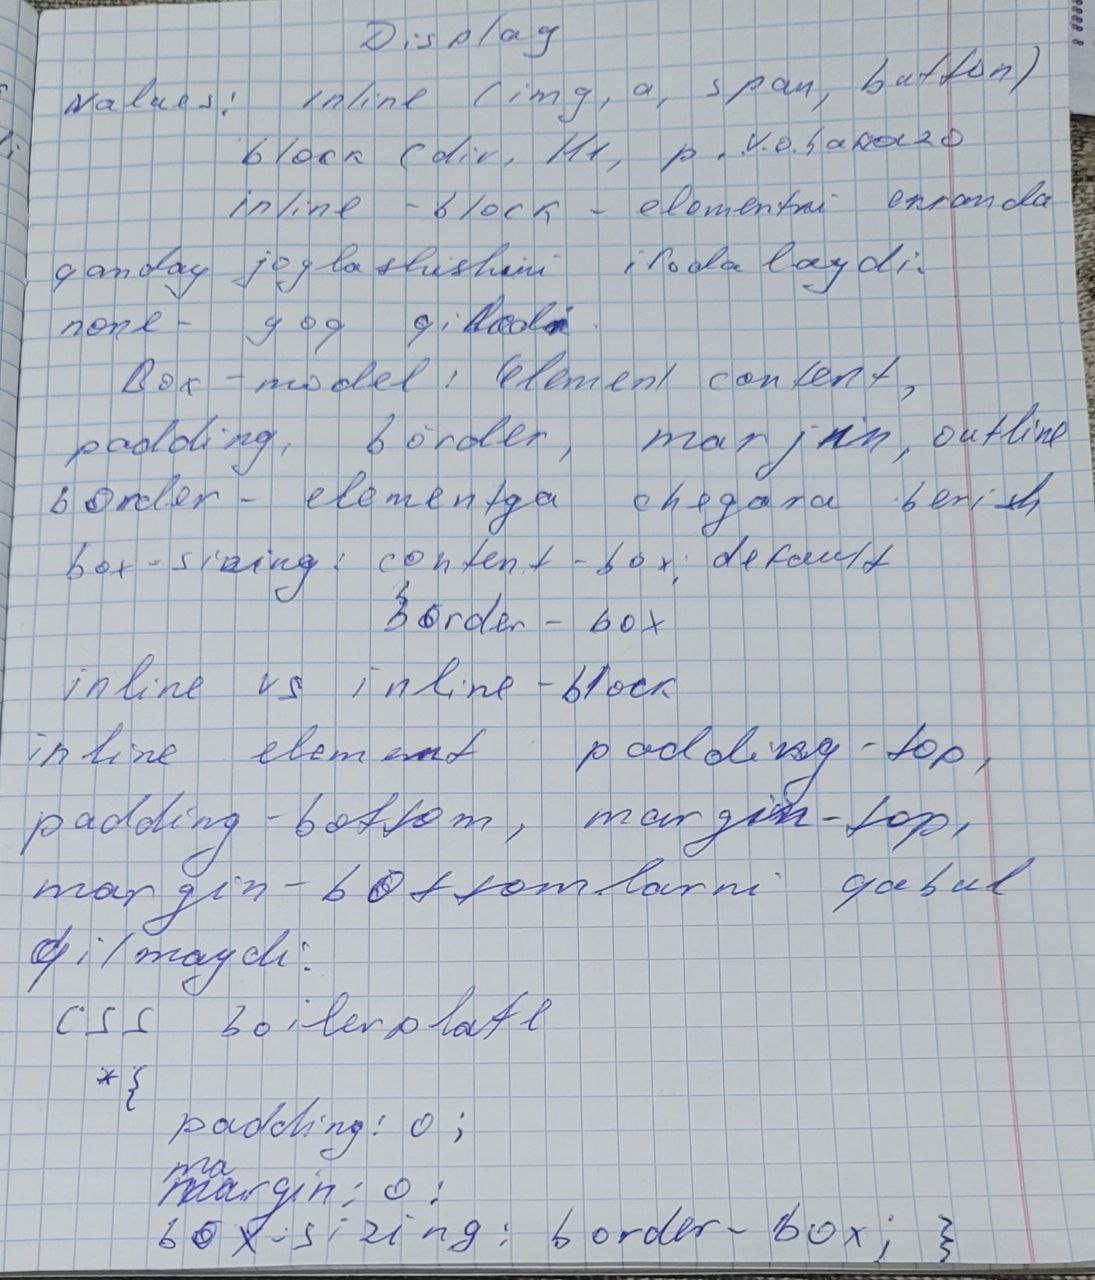 Display
Values: inline (img, a, span, button)
block (div, H1, p. v.
inline - block - elementni ekranda
qanday joylashishini ifodalaydi.
none - yoq qiladi.
Box - model: element content,
padding, border, marjin, outline
border - elementga chegara berish
box-sizing: content - box; default
border - box
inline vs inline - block
inline element padding - top,
padding - bottom, margin - top,
margin - bottomlarni qabul
qilmaydi.
CSS boilerplate
*{
padding: 0;
margin: 0;
box-sizing: border-box; }